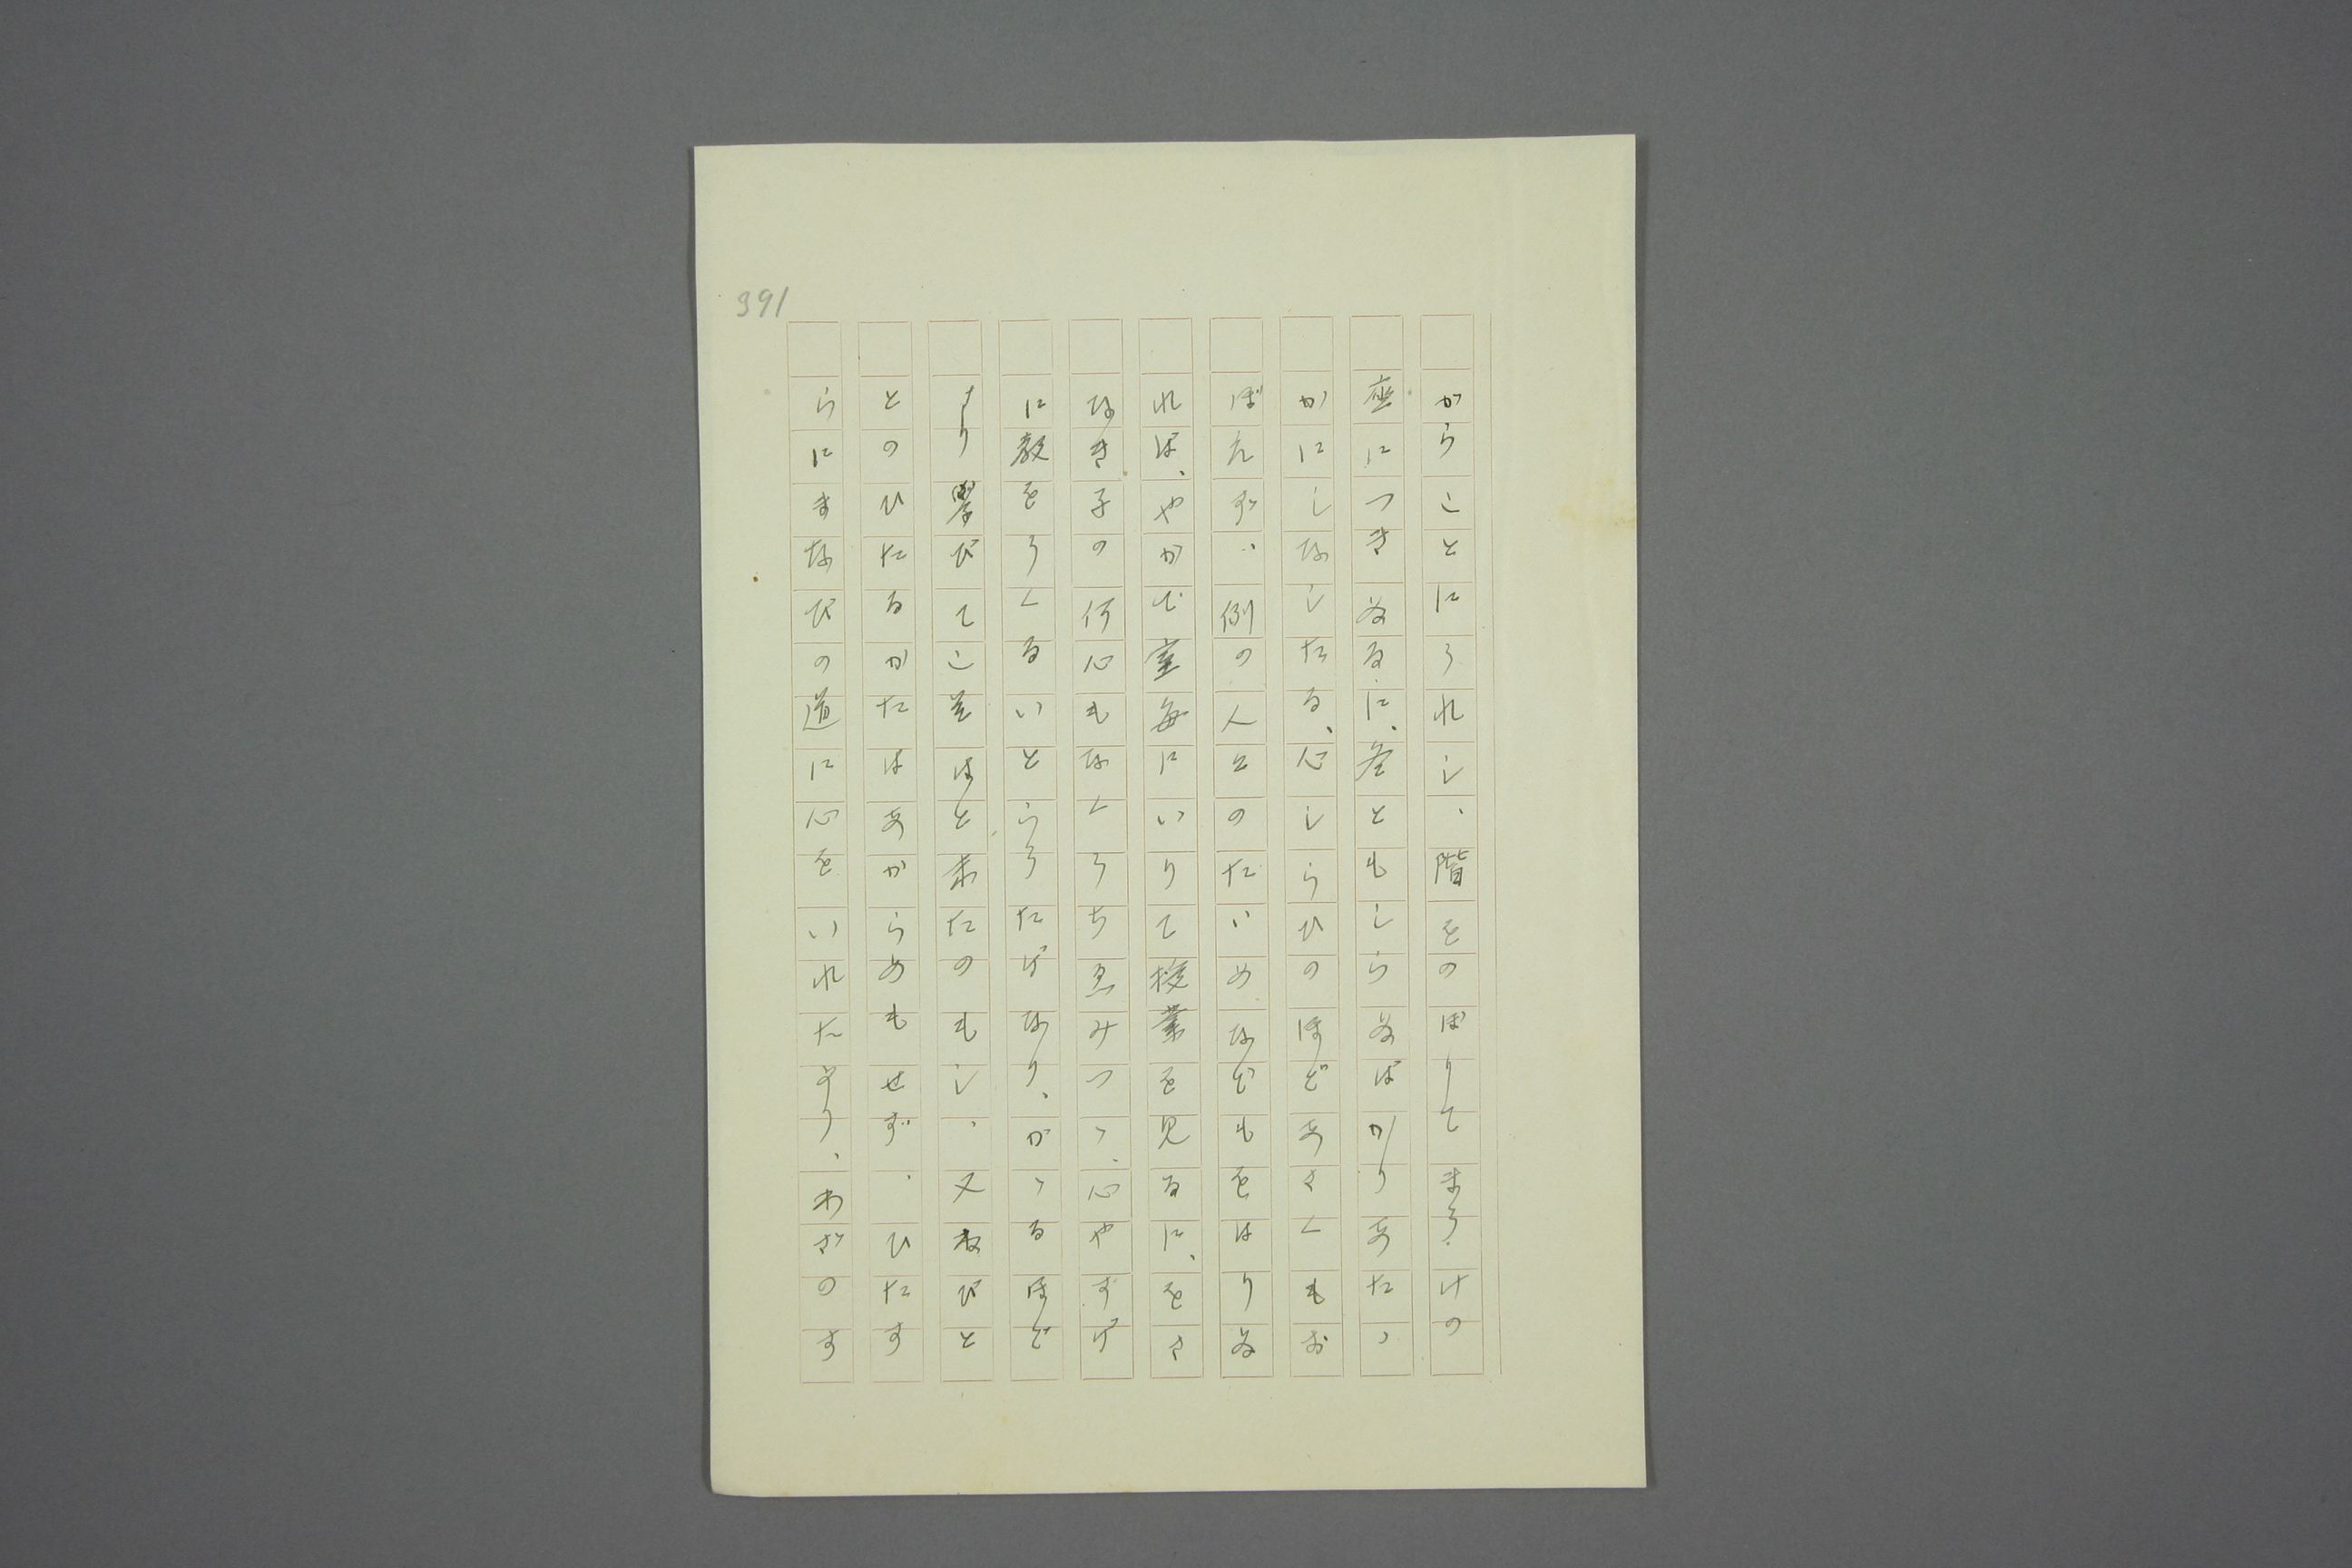 391
からことにうれし、階をのぼりてまうけの
座につきゐるに、冬ともしらゐばかりあたゝ
かにしなしたる、心しらひのほどあさくもお
ぼえず、例の人々のたいめなどもをはりゐ
れば、やがて室毎にいりて授業を見るに、をさ
なき子の何心もなくうちゑみつゝ、心やすげ
に教をうくるいとらうたげなり、かゝるほど
より學びてこそはと末たのもし、又ねびと
とのひたるかたはあからめもせず、ひたす
らにまなびの道に心をいれたまり、わざのす